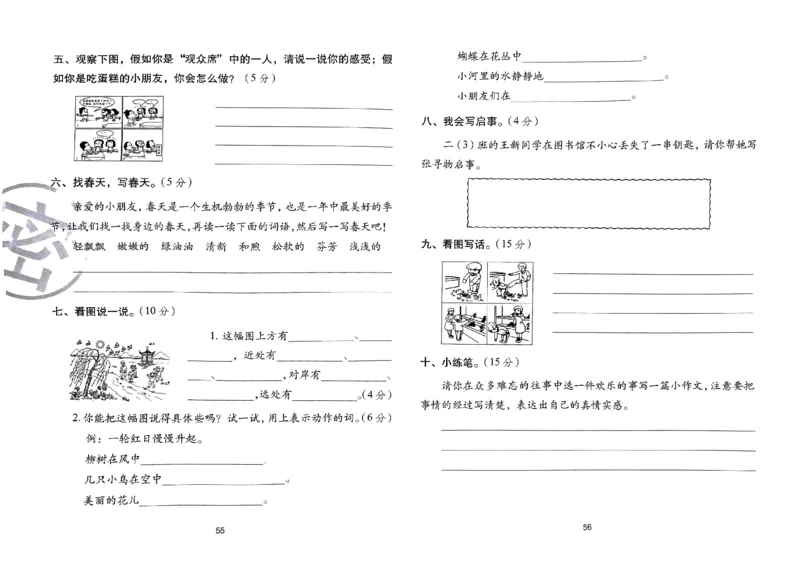 五、观察下图，假如你是“观众席”中的一人，请说一说你的感受；假
如你是吃蛋糕的小朋友，你会怎么做？（5分）
六、找春天，写春天。（5分）
亲爱的小朋友，春天是一个生机勃勃的季节，也是一年中最美好的季
节，让我们找一找身边的春天，再读一读下面的词语，然后写一写春天吧！
轻飘飘 嫩嫩的 绿油油 清新 和煦 松软的 芬芳 浅浅的
七、看图说一说。（10分）
1. 这幅图上方有、
，近处有、
、，对岸有、
，远处有。（4分）
2. 你能把这幅图说得具体些吗？试一试，用上表示动作的词。（6分）
例：一轮红日慢慢升起。
柳树在风中.
几只小鸟在空中。
美丽的花儿。
55
蝴蝶在花丛中。
小河里的水静静地。
小朋友们在。
八、我会写启事。（4分）
二（3）班的王新同学在图书馆不小心丢失了一串钥匙，请你帮她写
张寻物启事。
九、看图写话。（15分）
十、小练笔。（15分）
请你在众多难忘的往事中选一件欢乐的事写一篇小作文，注意要把
事情的经过写清楚，表达出自己的真情实感。
56